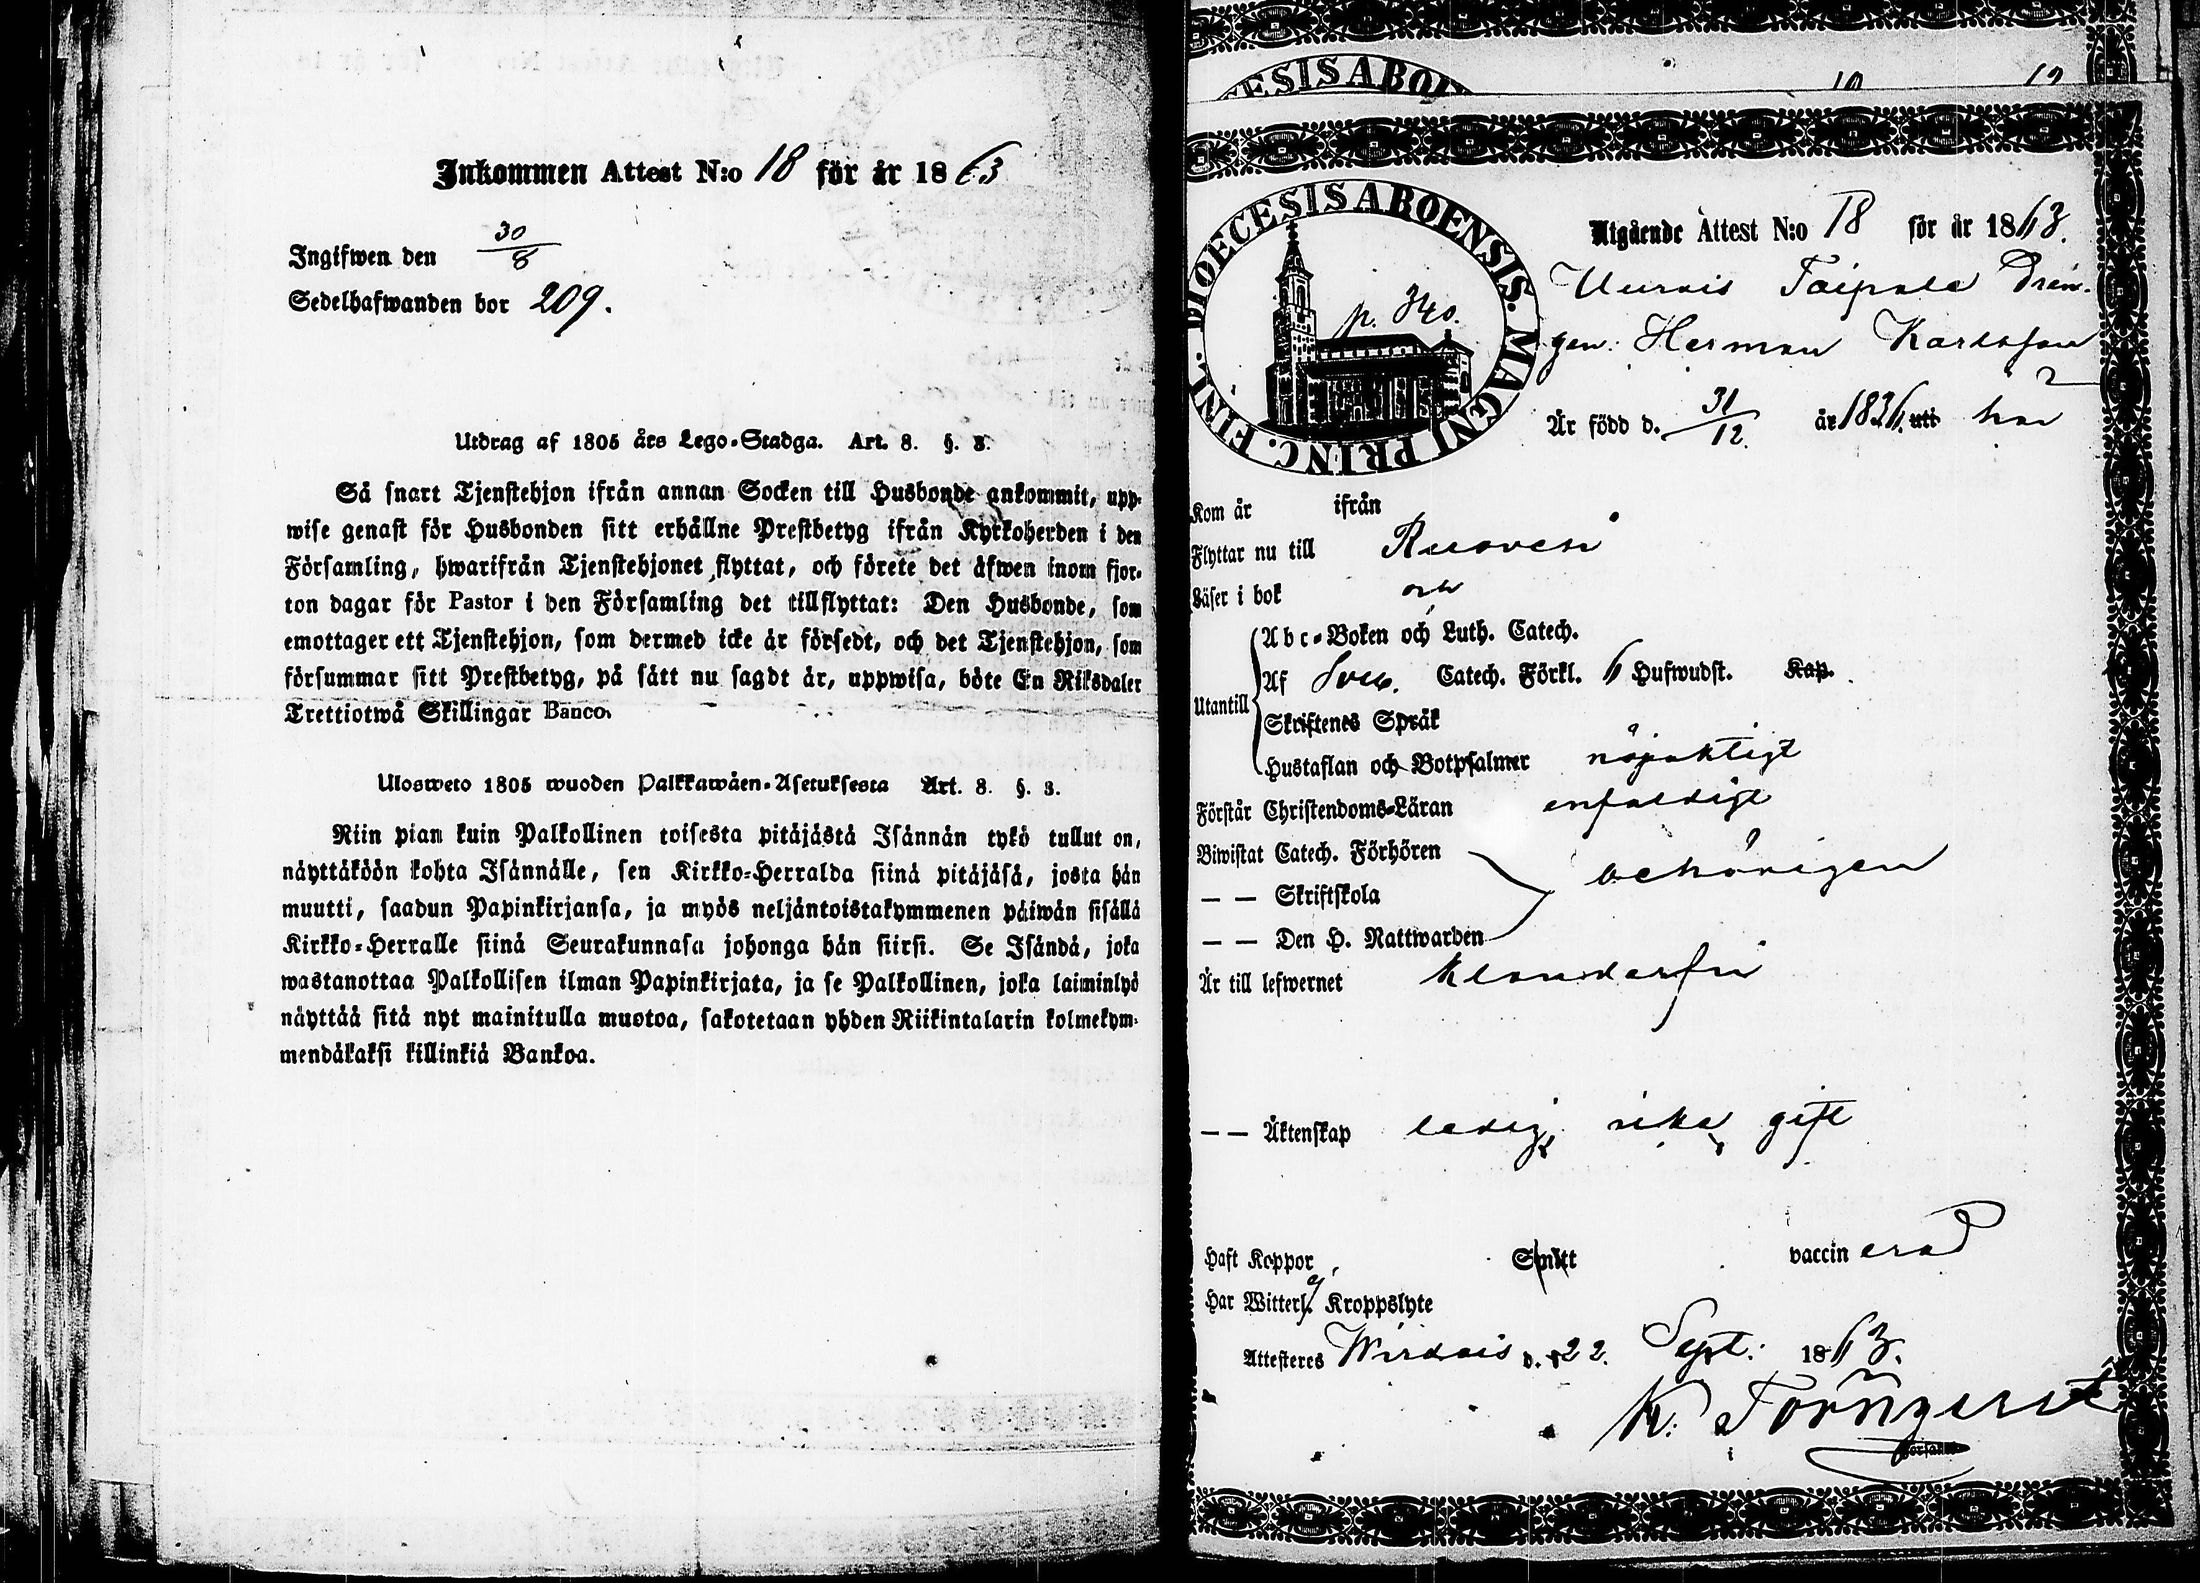 Inkommen Attest N:o 18 för år 1863
Ingifwen den 30/8
Sedelhafwanden bor 209.
Utdrag af 1805 års Lego-Stadga. Art. 8. §. 3.
Så snart Tjenstehjon ifrån annan Socken till Husbonde ankommit, upp-
wise genast för Husbonden sitt erhållne Prestbetyg ifrån Kyrkoherden i den
Församling, hwarifrån Tjenstehjonet flyttat, och förete det äfwen inom fjor-
ton dagar för Pastor i den Församling det tillflyttat: Den Husbonde, som
emottager ett Tjenstehjon, som dermed icke är försedt, och det Tjenstehjon, som
försummar sitt Prestbetyg, på sätt nu sagdt är, uppwisa, böte En Riksdaler
Trettiotwå Skillingar Banco.
Ulosweto 1805 wuoden Palkkawäen-Asetuksesta Art. 8. §. 3.
Niin pian kuin Palkollinen toisesta pitäjästä Isännän tykö tullut on,
näyttäköön kohta Isännälle, sen Kirkko-Herralda siinä pitäjäsä, josta hän
muutti, saadun Papinkirjansa, ja myös neljäntoistakymmenen päiwän sisällä
Kirkko-Herralle siinä Seurakunnasa johonga hän siirsi. Se Isändä, joka
wastanottaa Palkollisen ilman Papinkirjata, ja se Palkollinen, joka laiminlyö
näyttää sitä nyt mainitulla muotoa, sakotetaan yhden Riikintalarin kolmekym-
mendäkaksi killinkiä Bankoa.
DIOECESIS ABOENSIS. MAGNI PRINC. FINL.
p. 340.
Utgående Attest N:o 18 för år 1863.
Uurais Taipale Drän-
gen: Herman Karlsson
Är född d. 31/12. år 1836. utt här
Kom år ifrån
Flyttar nu till Ruovesi
Läser i bok och
Utantill
Abc-Boken och Luth. Catech.
Af Sveb. Catech. Förkl. 6 Hufwudst. Kap.
Skriftenes Språk
Hustaflan och Botpsalmer nöjaktigt
Förstår Christendoms-Läran enfaldigt
Biwistat Catech. Förhören behörigen
— — Skriftskola
— — Den H. Nattwarden
Är till lefwernet klanderfri
— — Äktenskap ledig, icke gift
Haft Koppor, Smitt vaccinerad
Har Witterl. ej Kroppslyte
Attesteres Wirdois d. 22. Sept. 1863.
K. Törnqvist